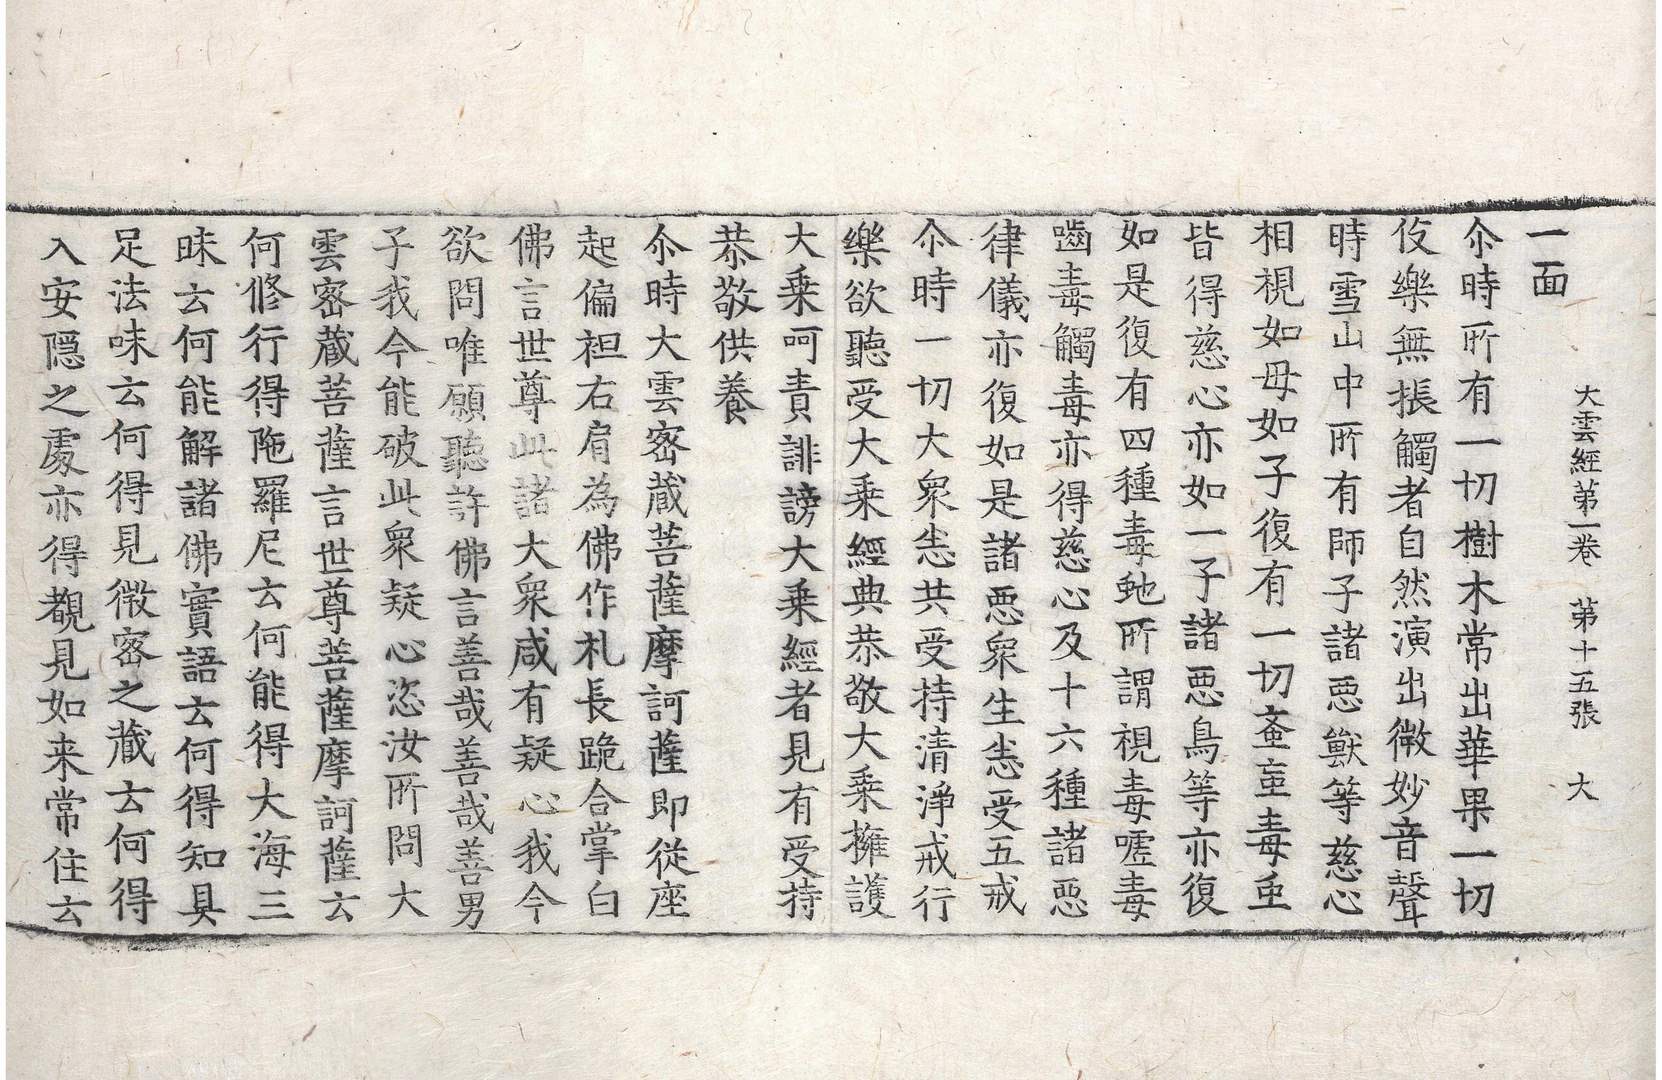 大雲經第一卷 第十五張 大
一面
尒時所有一切樹木常出華果一切
伎樂無掁觸者自然演出微妙音聲
時雪山中所有師子諸悪獸等慈心
相視如母如子復有一切蚤䖟毒虫
皆得慈心亦如一子諸悪鳥等亦復
如是復有四種毒虵所謂視毒嘘毒
嚙毒觸毒亦得慈心及十六種諸悪
律儀亦復如是諸悪衆生悉受五戒
尒時一切大衆悉共受持清淨戒行
樂欲聽受大乗經典恭敬大乗擁護
大乗呵責誹謗大乗經者見有受持
恭敬供養
尒時大雲宻蔵菩薩摩訶薩即從座
起偏袒右肩為佛作礼長跪合掌白
佛言世尊此諸大衆咸有疑心我今
欲問唯願聽許佛言善哉善哉善男
子我今能破此衆疑心恣汝所問大
雲宻蔵菩薩言世尊菩薩摩訶薩云
何修行得陁羅尼云何能得大海三
昧云何能解諸佛實語云何得知具
足法味云何得見微宻之蔵云何得
入安隠之處亦得覩見如来常住云